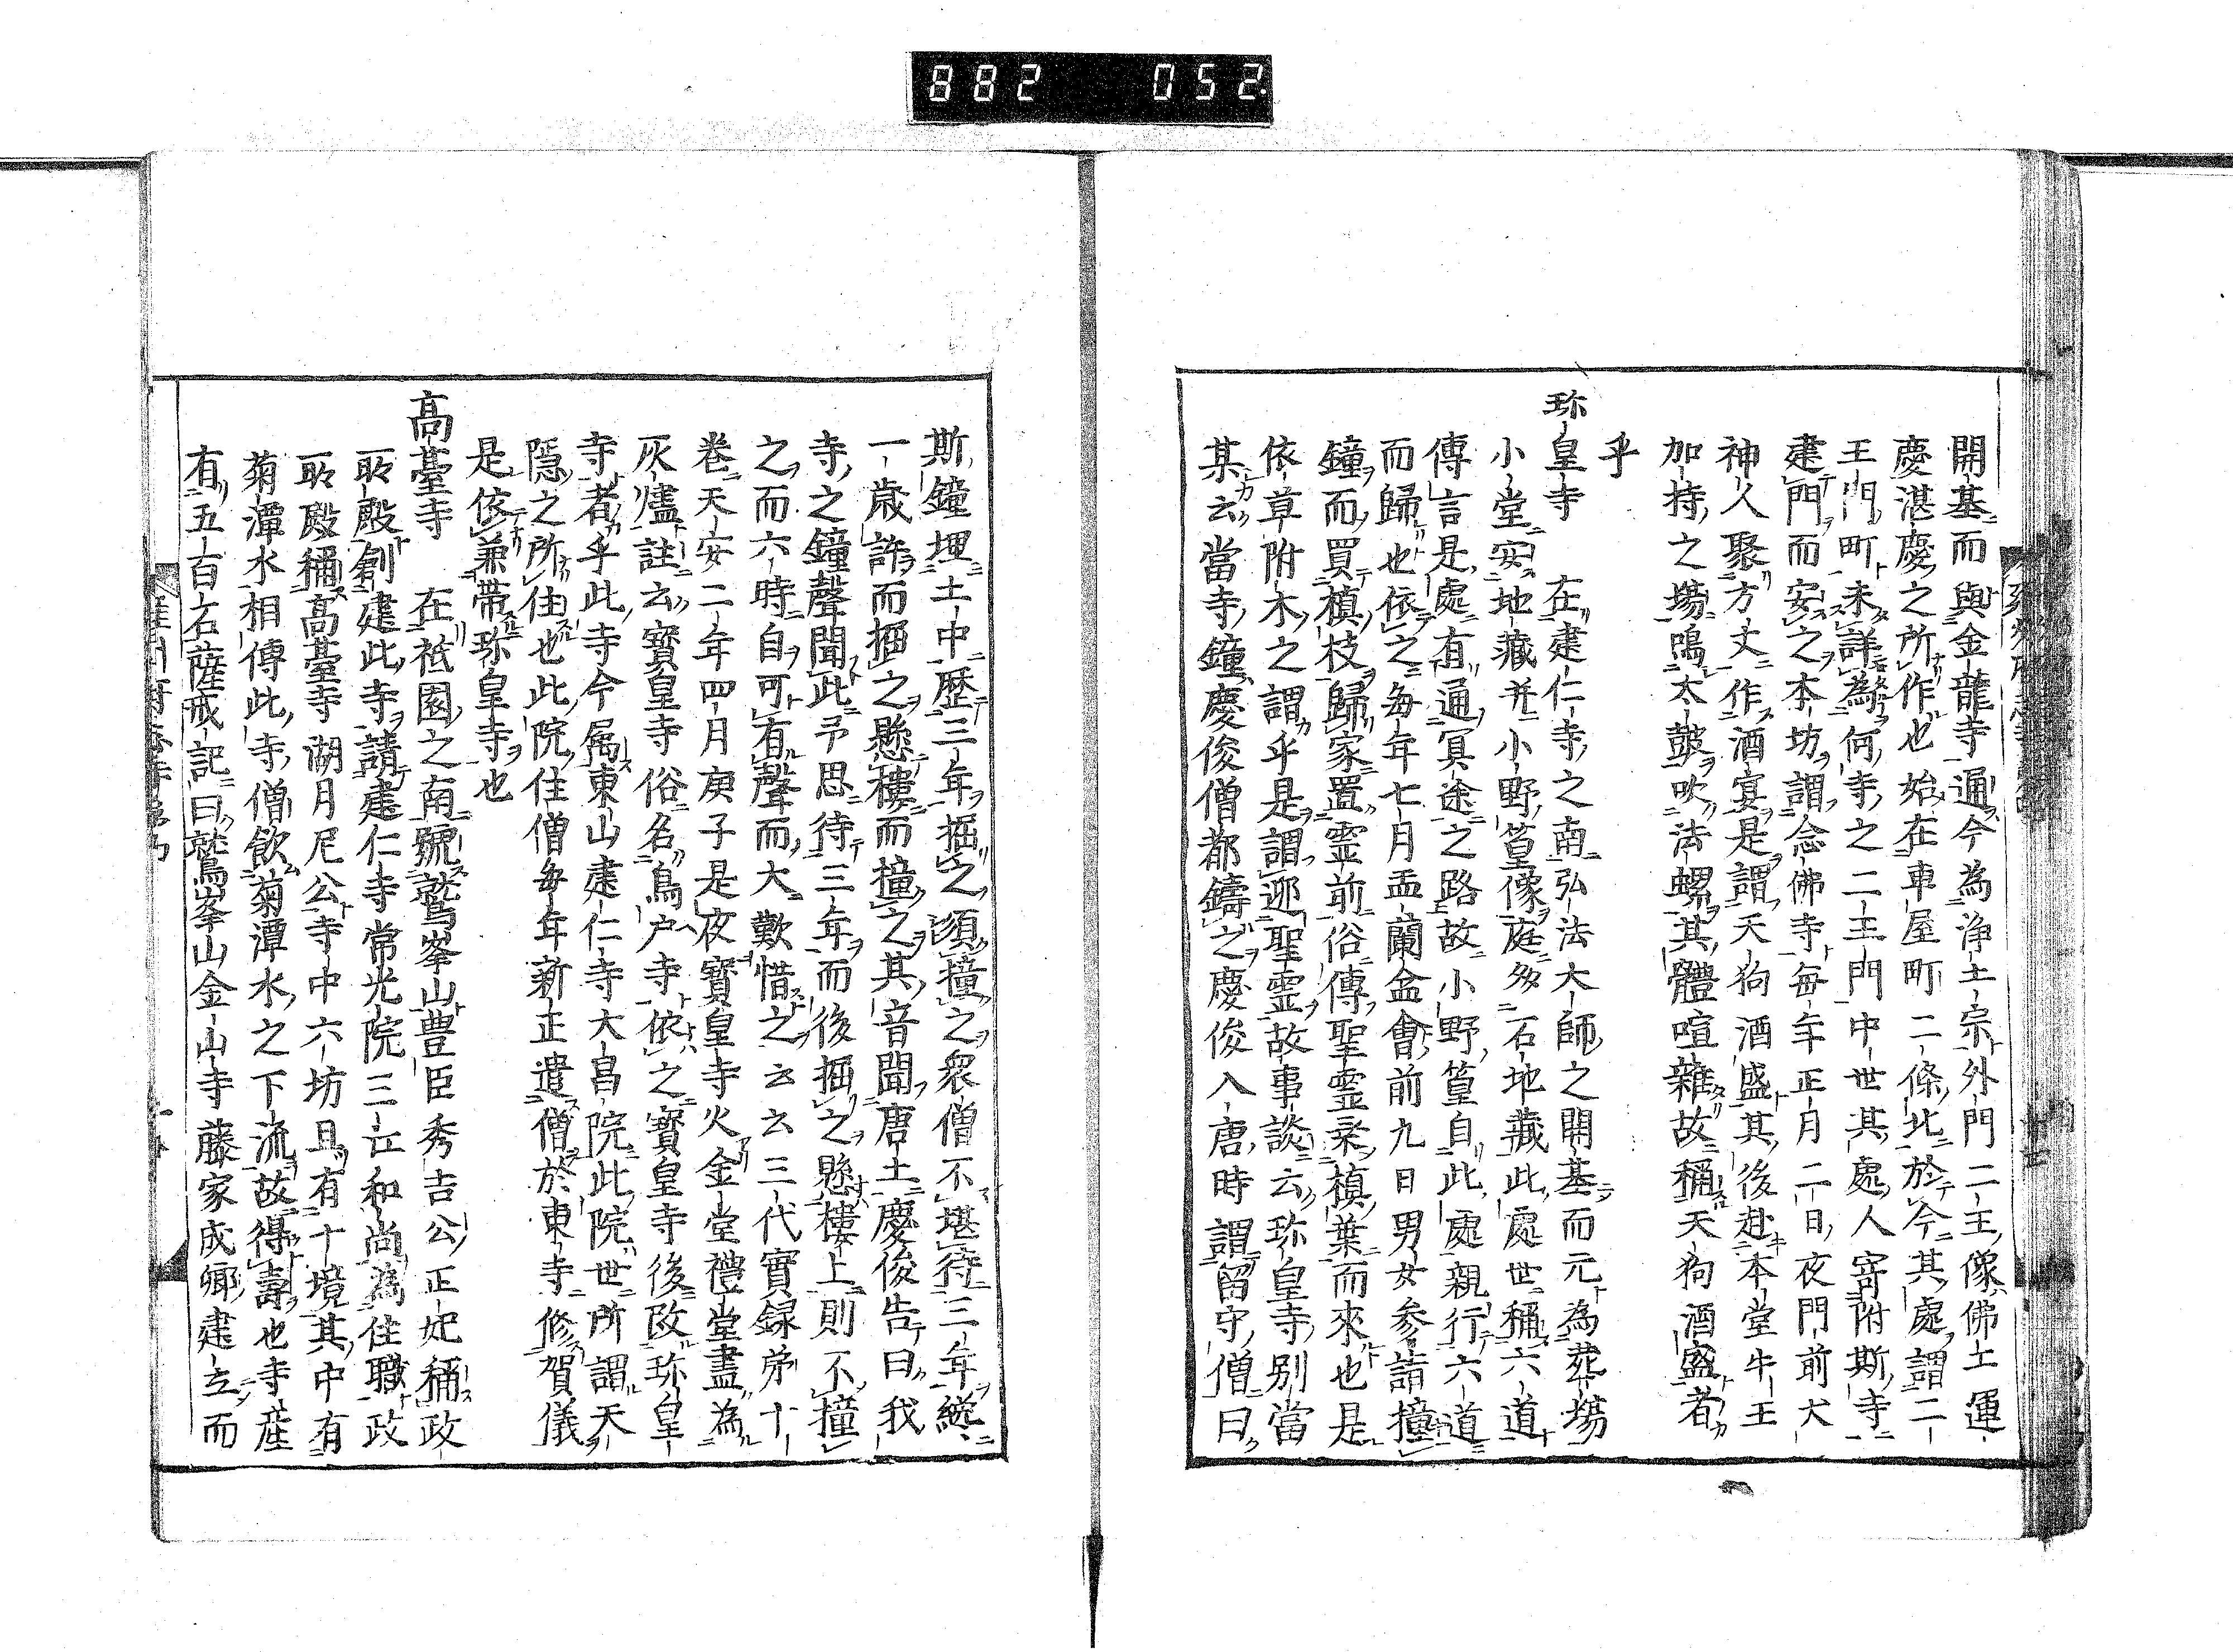 882 052
開基而與金龍寺通今為浄土宗外門二王像佛工運
慶湛慶之所作也始在車屋町二條北於今其處謂二
王門町未詳為何寺之二王門中世其處人寄附斯寺
建門而安之本坊謂念佛寺毎年正月二日夜門前犬
神人聚方丈作酒宴是謂天狗酒盛其後赴本堂牛王
加持之場鳴太皷吹法螺其體喧雜故稱天狗酒盛者
乎
珎皇寺 在建仁寺之南弘法大師之開基而元為葬場
小堂安地藏并小野篁像庭多石地藏此處世稱六道
傳言是處有通冥途之路故小野篁自此處親行六道
而歸也依之毎年七月盂蘭盆會前九日男女参詣撞
鐘而買槙枝歸家置霊前俗傳聖霊乘槙葉而來也是
依草附木之謂乎是謂迎聖霊故事談云珎皇寺別當
某云當寺鐘慶俊僧都鑄之慶俊入唐時謂留守僧曰
斯鐘埋土中歴三年掘之須撞之衆僧不堪待三年纔
一歳許而掘之懸樓而撞之其音聞唐土慶俊告曰我
寺之鐘聲聞此予思待三年而後掘之懸樓上則不撞
之而六時自可有聲而大歎惜之云云三代實録第十
巻天安二年四月庚子是夜寳皇寺火金堂禮堂盡為
灰燼註云寳皇寺俗名鳥戸寺依之寳皇寺後改珎皇
寺者乎此寺今属東山建仁寺大昌院此院世所謂天
隠之所住也此院住僧毎年新正遣僧於東寺修賀儀
是依兼帯珎皇寺也
髙臺寺 在祗園之南號鷲峯山豊臣秀吉公正妃稱政
所殿創建此寺請建仁寺常光院三江和尚為住職政
所殿稱髙臺寺湖月尼公寺中六坊且有十境其中有
菊潭水相傳此寺僧飲菊潭水之下流故得壽也寺産
有五百石薩戒記曰鷲峯山金山寺藤家成卿建立而